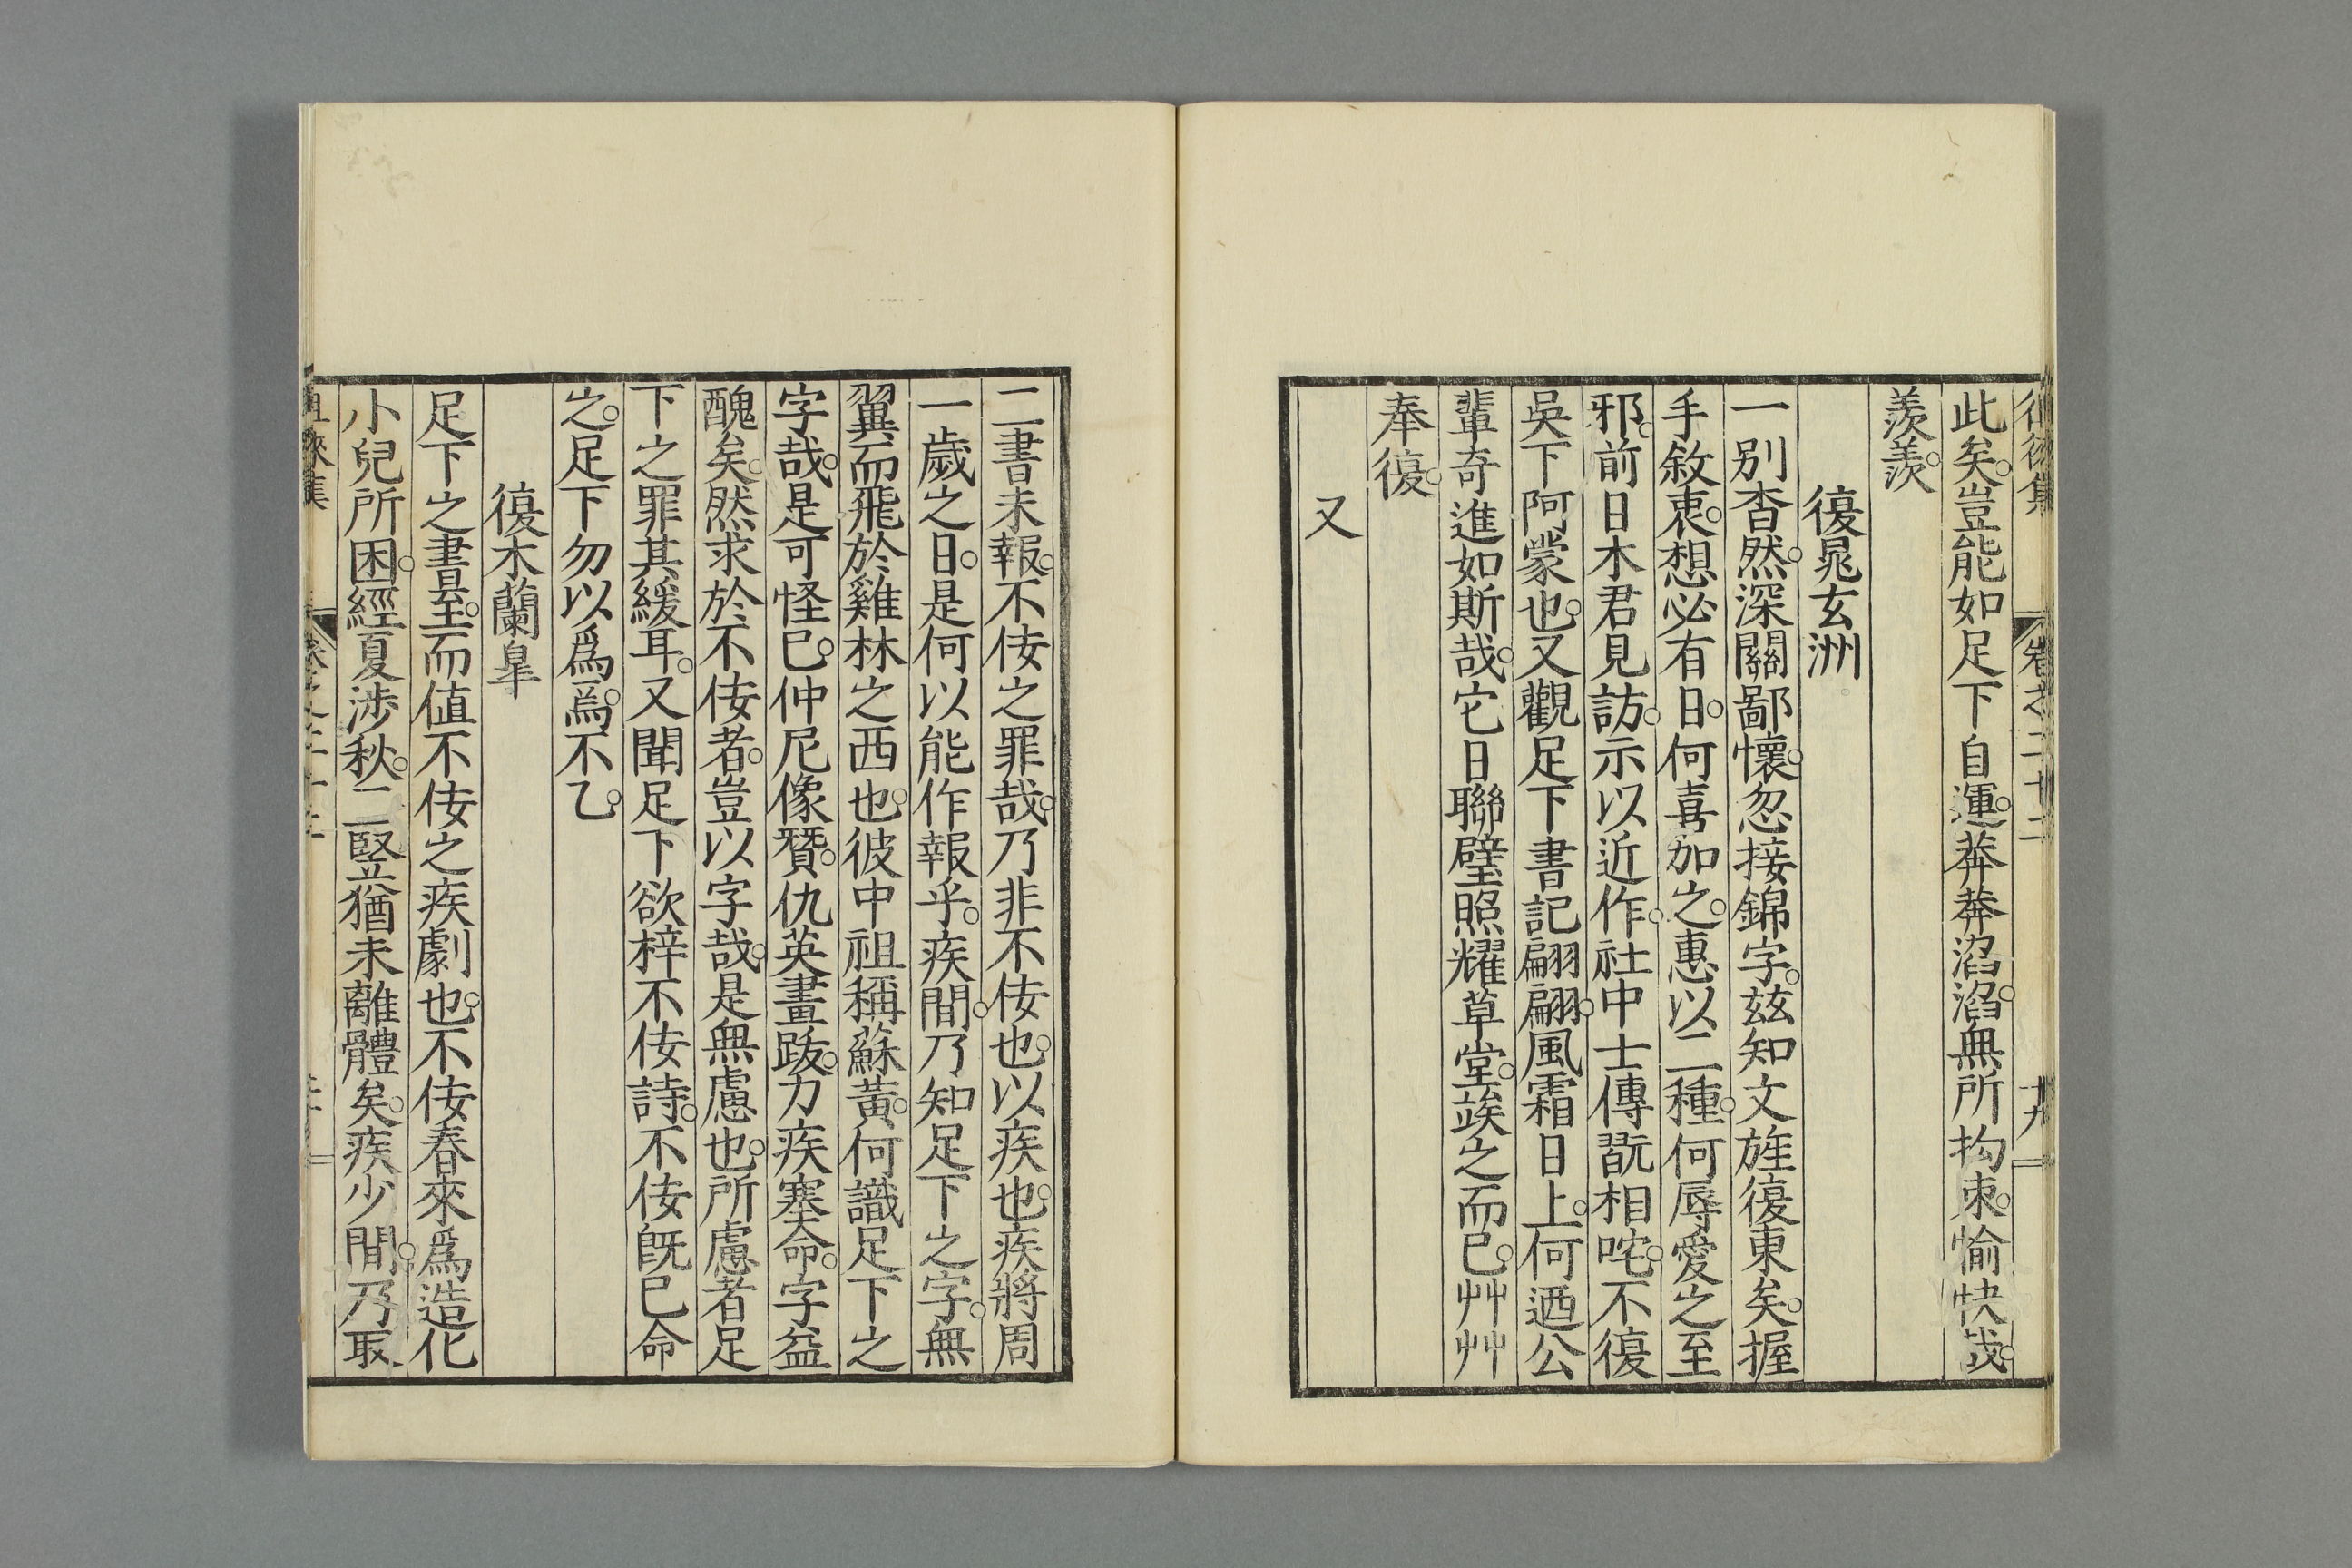 徂徠集 卷之二十二 十九
此矣。豈能如足下自運。莽莽滔滔。無所拘束。愉快哉。
羡羡。
復晁玄洲
一別杳然。深關鄙懷。忽接錦字。茲知文旌復東矣。握
手敘衷。想必有日。何喜加之。惠以二種。何辱愛之至
邪。前日木君見訪。示以近作。社中士傳翫相咤。不復
吳下阿蒙也。又觀足下書記翩翩。風霜日上。何迺公
輩奇進如斯哉。它日聯璧照耀草堂。竢之而已。艸艸
奉復。
又
二書未報。不佞之罪哉。乃非不佞也。以疾也。疾將周
一歲之日。是何以能作報乎。疾間。乃知足下之字。無
翼而飛於雞林之西也。彼中祖稱蘇黃。何識足下之
字哉。是可怪已。仲尼像贊。仇英畫跋。力疾塞命。字益
醜矣。然求於不佞者。豈以字哉。是無慮也。所慮者足
下之罪其緩耳。又聞足下欲梓不佞詩。不佞旣已命
之。足下勿以爲焉。不乙。
復木蘭皐
足下之書至。而值不佞之疾劇也。不佞春來爲造化
小兒所困。經夏涉秋。二豎猶未離體矣。疾少間。乃取
徂徠集 卷之二十二